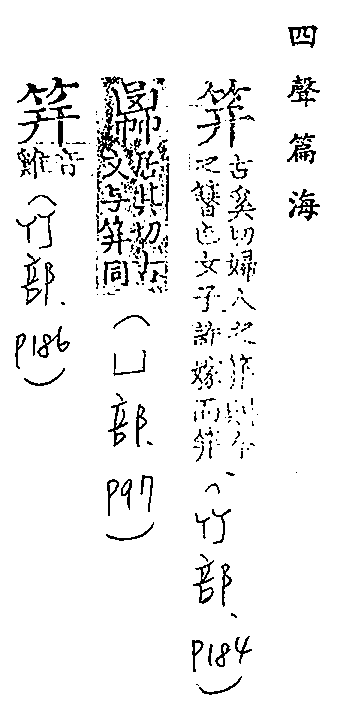 四聲篇海
笄 古奚切婦人之笄則今
之簪也女子許嫁而笄
(竹部、P184)
居其切古
文与笄同
(凵部、P97)
音
雞
(竹部、P186)